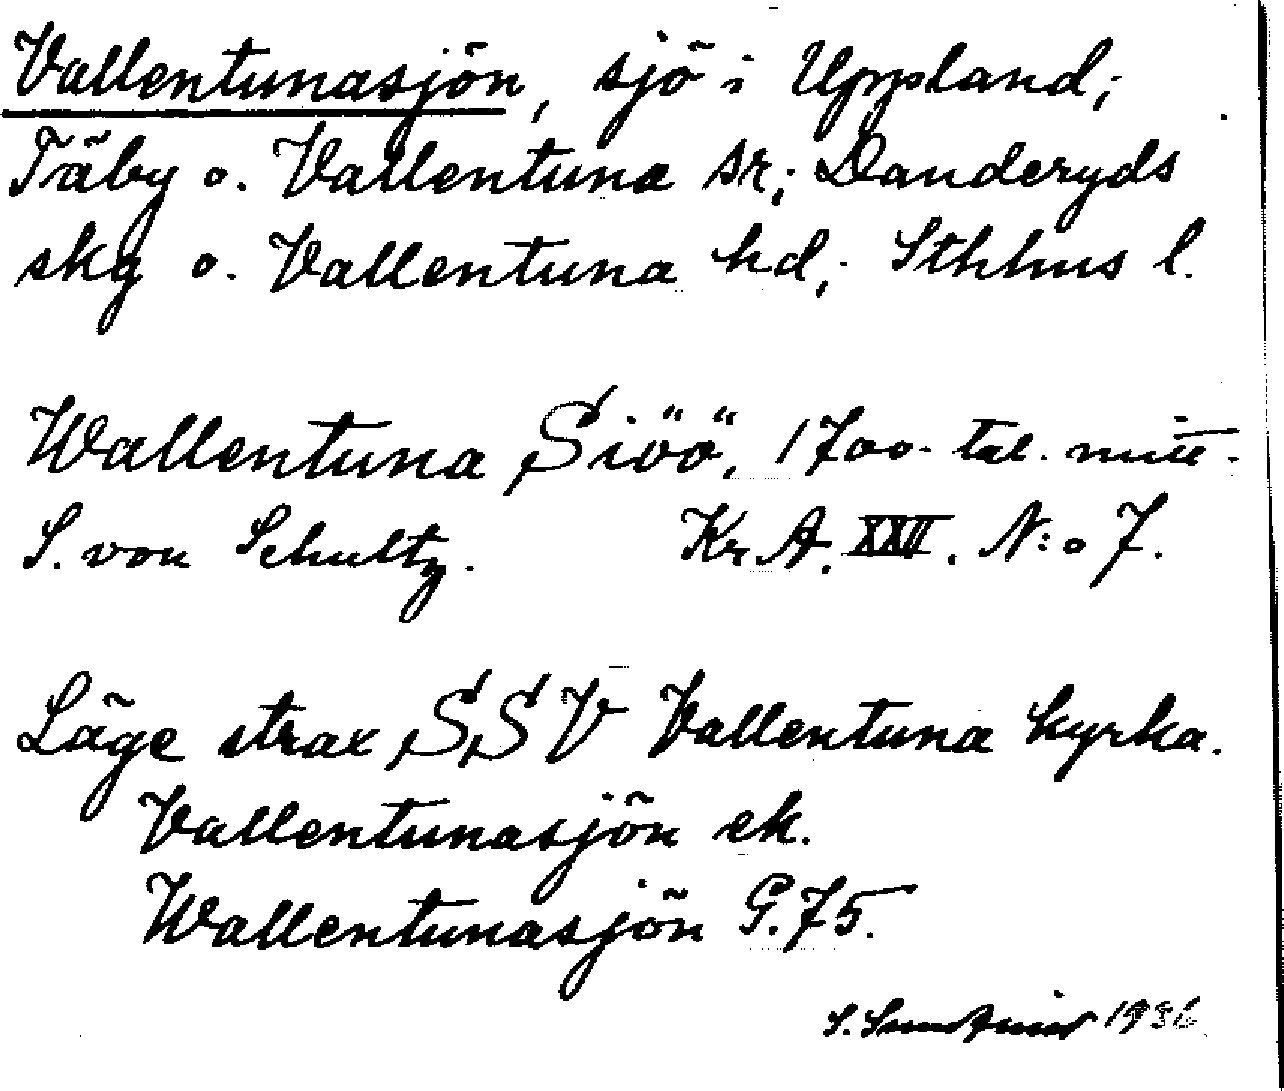 Vallentunasjön, sjö i Uppland;
Täby o. Vallentuna sr; Danderyds
skg o. Vallentuna hd; Sthlms l.
Wallentuna Siöö, 1700-tal. mitt.
S. von Schultz. Kr A. XXII. N:o 7.
Läge strax SSV Vallentuna kyrka.
Vallentunasjön ek.
Wallentunasjön G. 75.
S. 1936